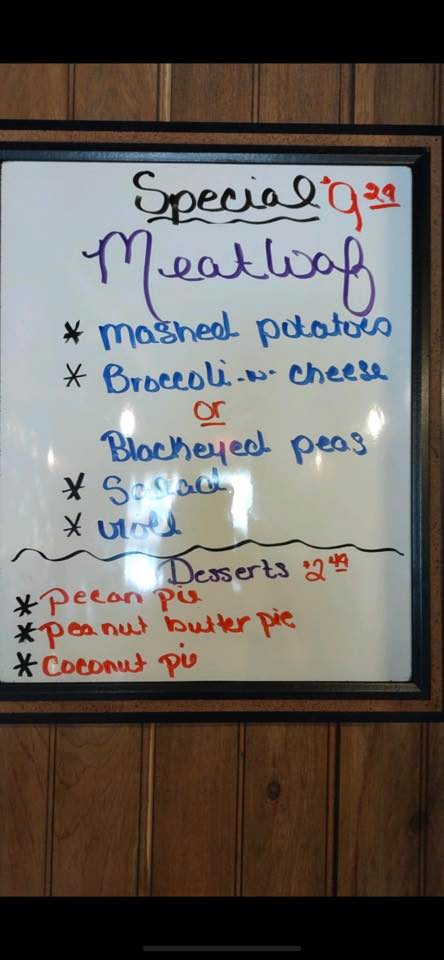 Special $9.29
Meatloaf
* Mashed potatoes
* Broccoli -w- cheese
or
Blackeyed peas
* Salad
* roll
Desserts $2.49
* Pecan pie
* peanut butter pie
* Coconut pie